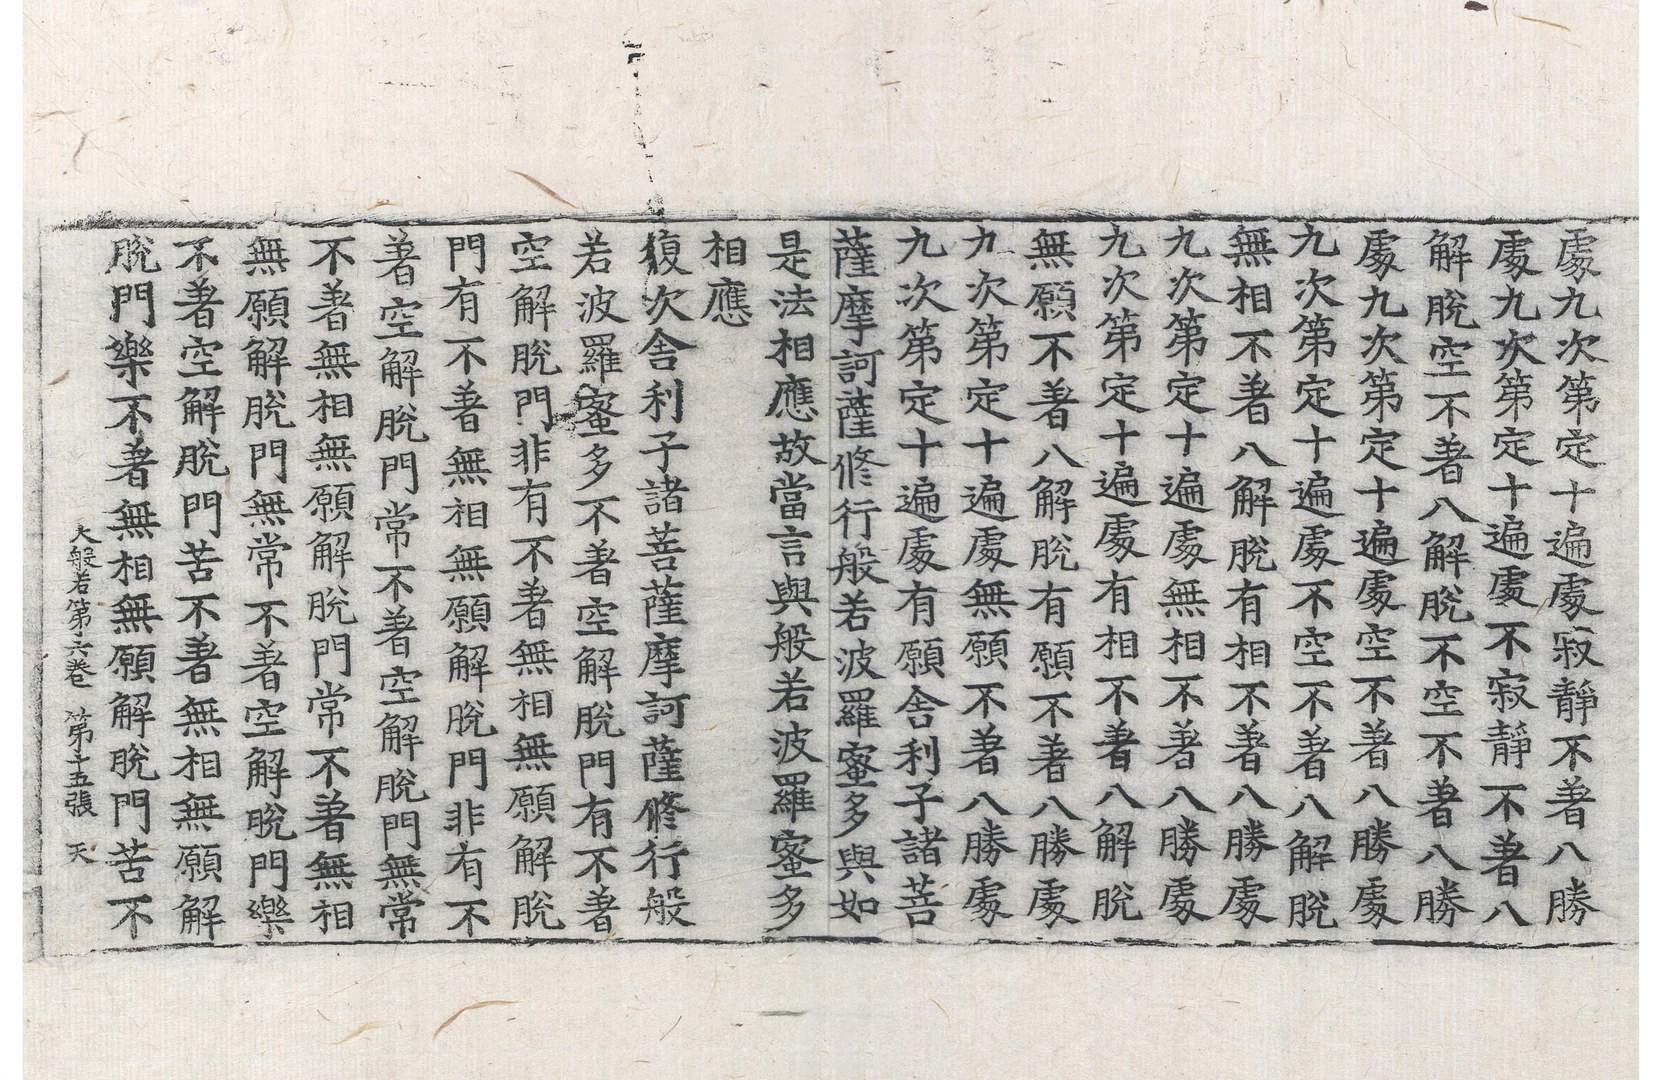 處九次第定十遍處寂靜不著八勝
處九次第定十遍處不寂靜不著八
解脫空不著八解脫不空不著八勝
處九次第定十遍處空不著八勝處
九次第定十遍處不空不著八解脫
無相不著八解脫有相不著八勝處
九次第定十遍處無相不著八勝處
九次第定十遍處有相不著八解脫
無願不著八解脫有願不著八勝處
九次第定十遍處無願不著八勝處
九次第定十遍處有願舍利子諸菩
薩摩訶薩修行般若波羅蜜多與如
是法相應故當言與般若波羅蜜多
相應
復次舍利子諸菩薩摩訶薩修行般
若波羅蜜多不著空解脫門有不著
空解脫門非有不著無相無願解脫
門有不著無相無願解脫門非有不
著空解脫門常不著空解脫門無常
不著無相無願解脫門常不著無相
無願解脫門無常不著空解脫門樂
不著空解脫門苦不著無相無願解
脫門樂不著無相無願解脫門苦不
大般若第六卷 第十五張 天